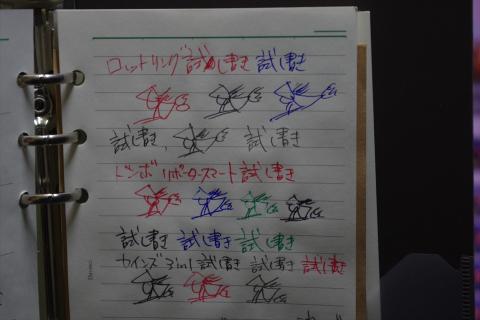 ロットリング 試し書き 試し書き
試し書き、 試し書き
トンボ リポータースマート 試し書き
試し書き 試し書き 試し書き
カインズ 3in1 試し書き 試し書き 試し書き